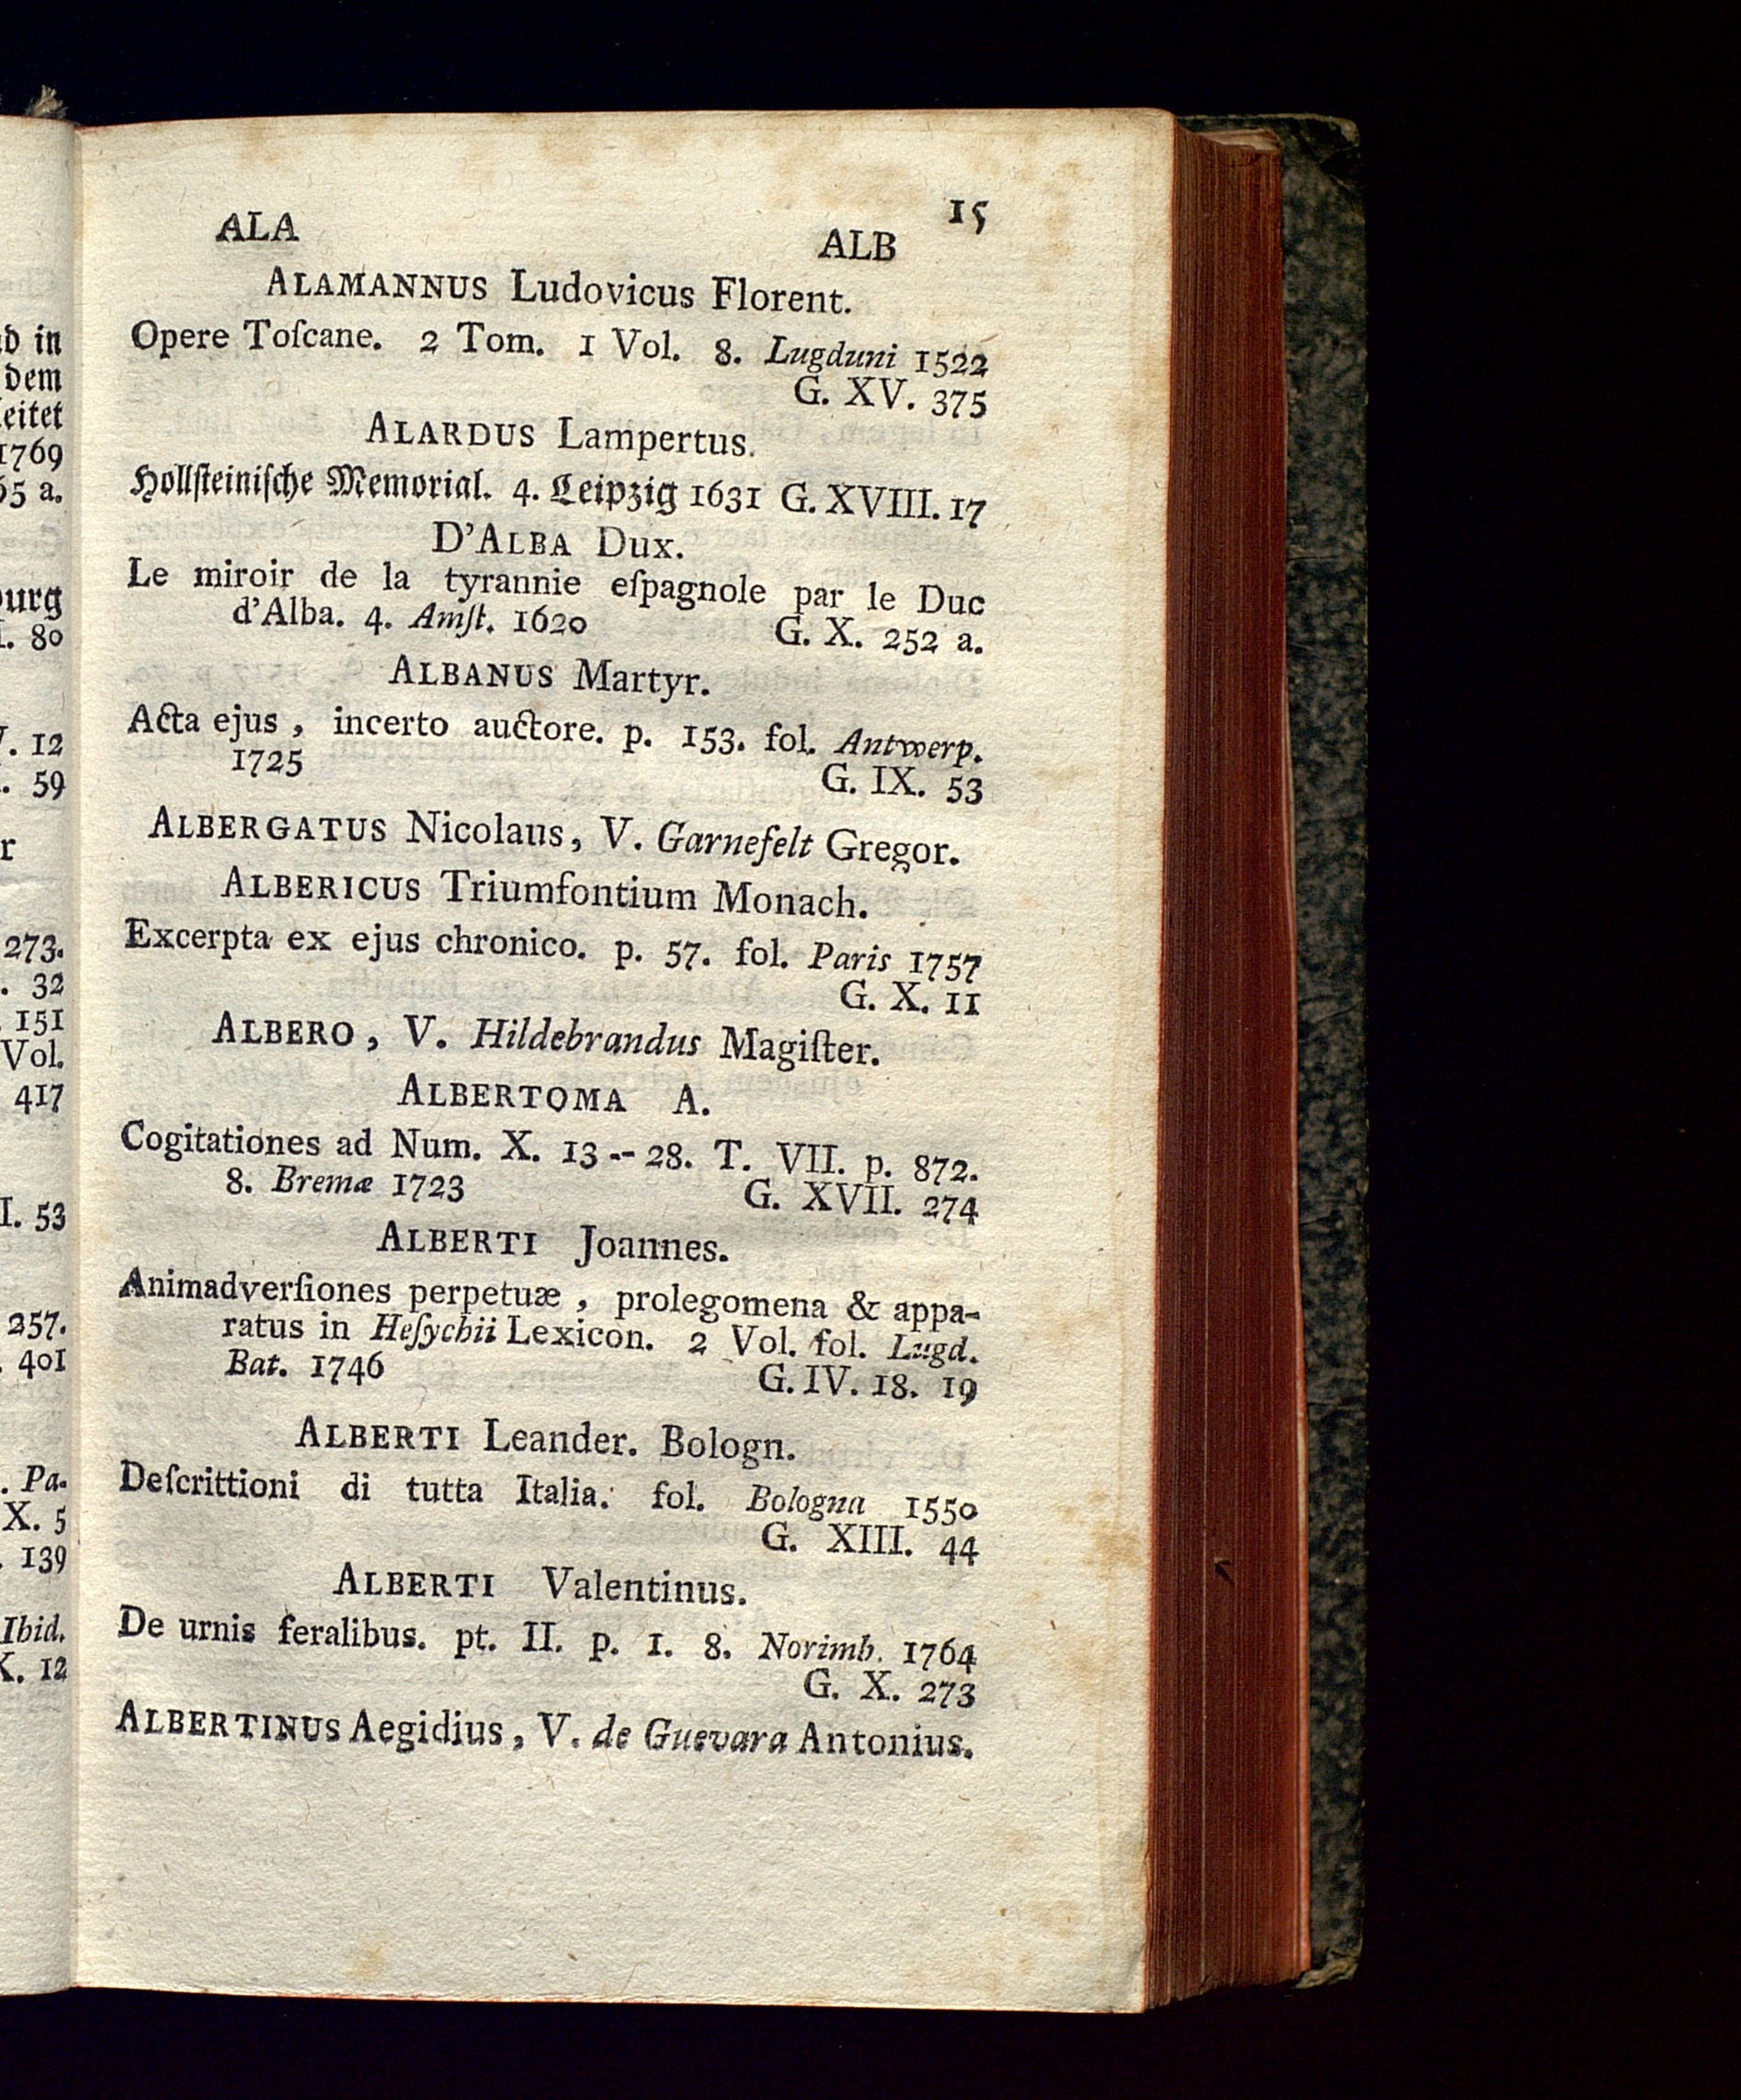 15
ALA ALB
ALAMANNUS Ludovicus Florent.
Opere Toſcane. 2 Tom. 1 Vol. 8. Lugduni 1522
G. XV. 375
ALARDUS Lampertus.
Hollſteiniſche Memorial. 4. Leipzig 1631 G. XVIII. 17
D'ALBA Dux.
Le miroir de la tyrannie eſpagnole par le Duc
d'Alba. 4. Amſt. 1620 G. X. 252 a.
ALBANUS Martyr.
Acta ejus, incerto auctore. p. 153. fol. Antwerp.
1725 G. IX. 53
ALBERGATUS Nicolaus, V. Garnefelt Gregor.
ALBERICUS Triumfontium Monach.
Excerpta ex ejus chronico. p. 57. fol. Paris 1757
G. X. 11
ALBERO, V. Hildebrandus Magiſter.
ALBERTOMA A.
Cogitationes ad Num. X. 13 -- 28. T. VII. p. 872.
8. Bremæ 1723 G. XVII. 274
ALBERTI Joannes.
Animadverſiones perpetuæ, prolegomena & appa-
ratus in Heſychii Lexicon. 2 Vol. fol. Lugd.
Bat. 1746 G. IV. 18. 19
ALBERTI Leander. Bologn.
Deſcrittioni di tutta Italia. fol. Bologna 1550
G. XIII. 44
ALBERTI Valentinus.
De urnis feralibus. pt. II. p. 1. 8. Norimb. 1764
G. X. 273
ALBERTINUS Aegidius, V. de Guevara Antonius.